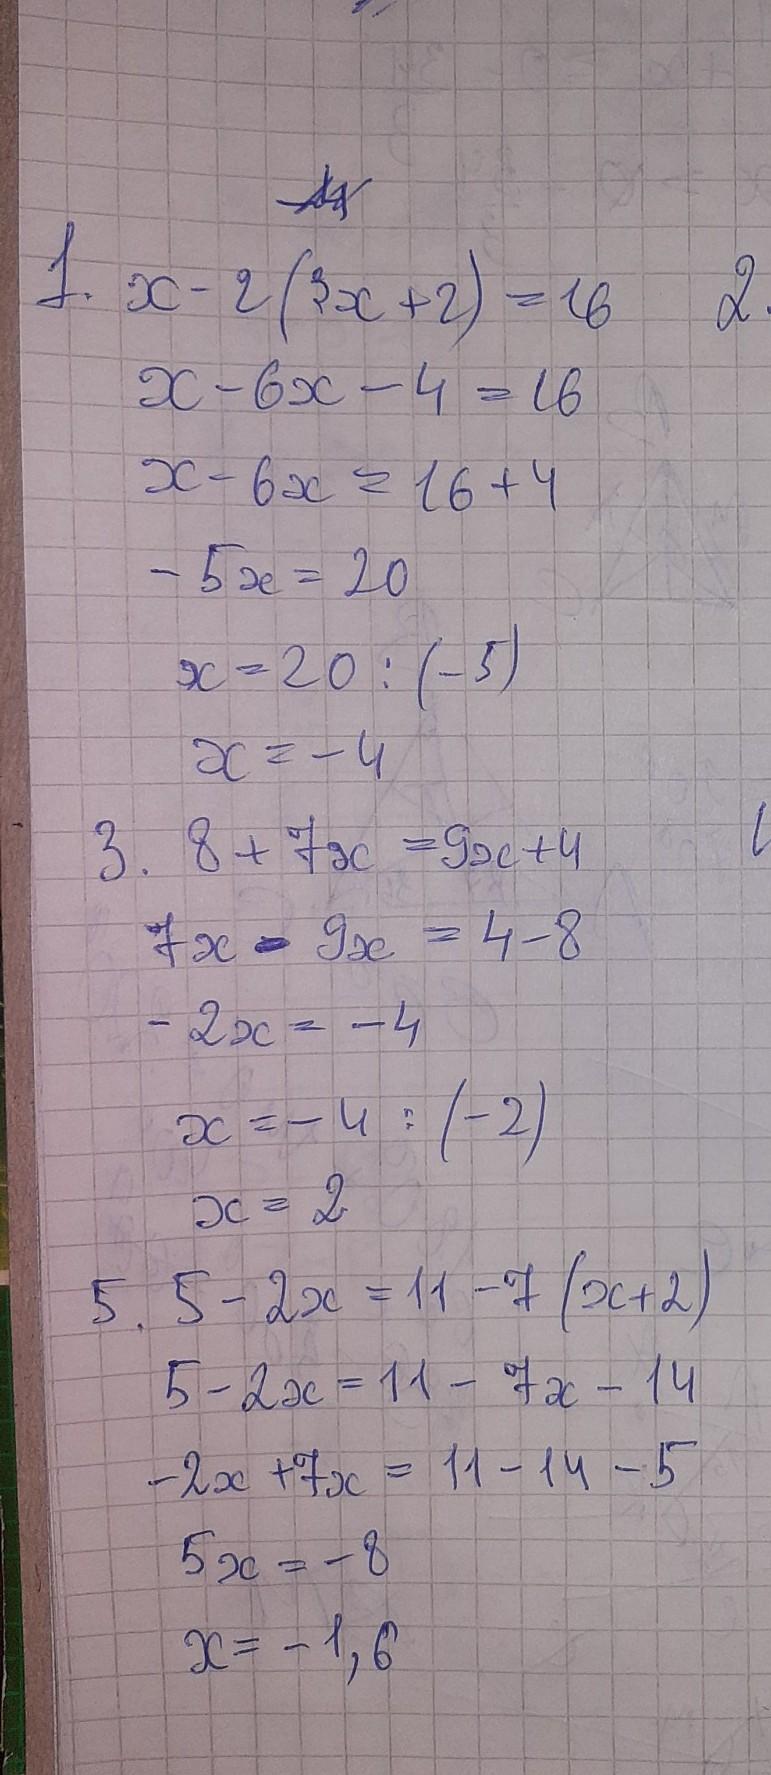 1. x - 2(3x + 2) = 16
x - 6x - 4 = 16
x - 6x = 16 + 4
- 5x = 20
x = 20 : (-5)
x = - 4
3. 8 + 7x = 9x + 4
7x - 9x = 4 - 8
- 2x = - 4
x = - 4 : (-2)
x = 2
5. 5 - 2x = 11 - 7(x + 2)
5 - 2x = 11 - 7x - 14
-2x + 7x = 11 - 14 - 5
5x = - 8
x = - 1,6
2.